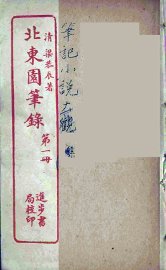 清 梁恭辰著
北東園筆錄 第一冊
進步書
局校印
筆記小說大觀